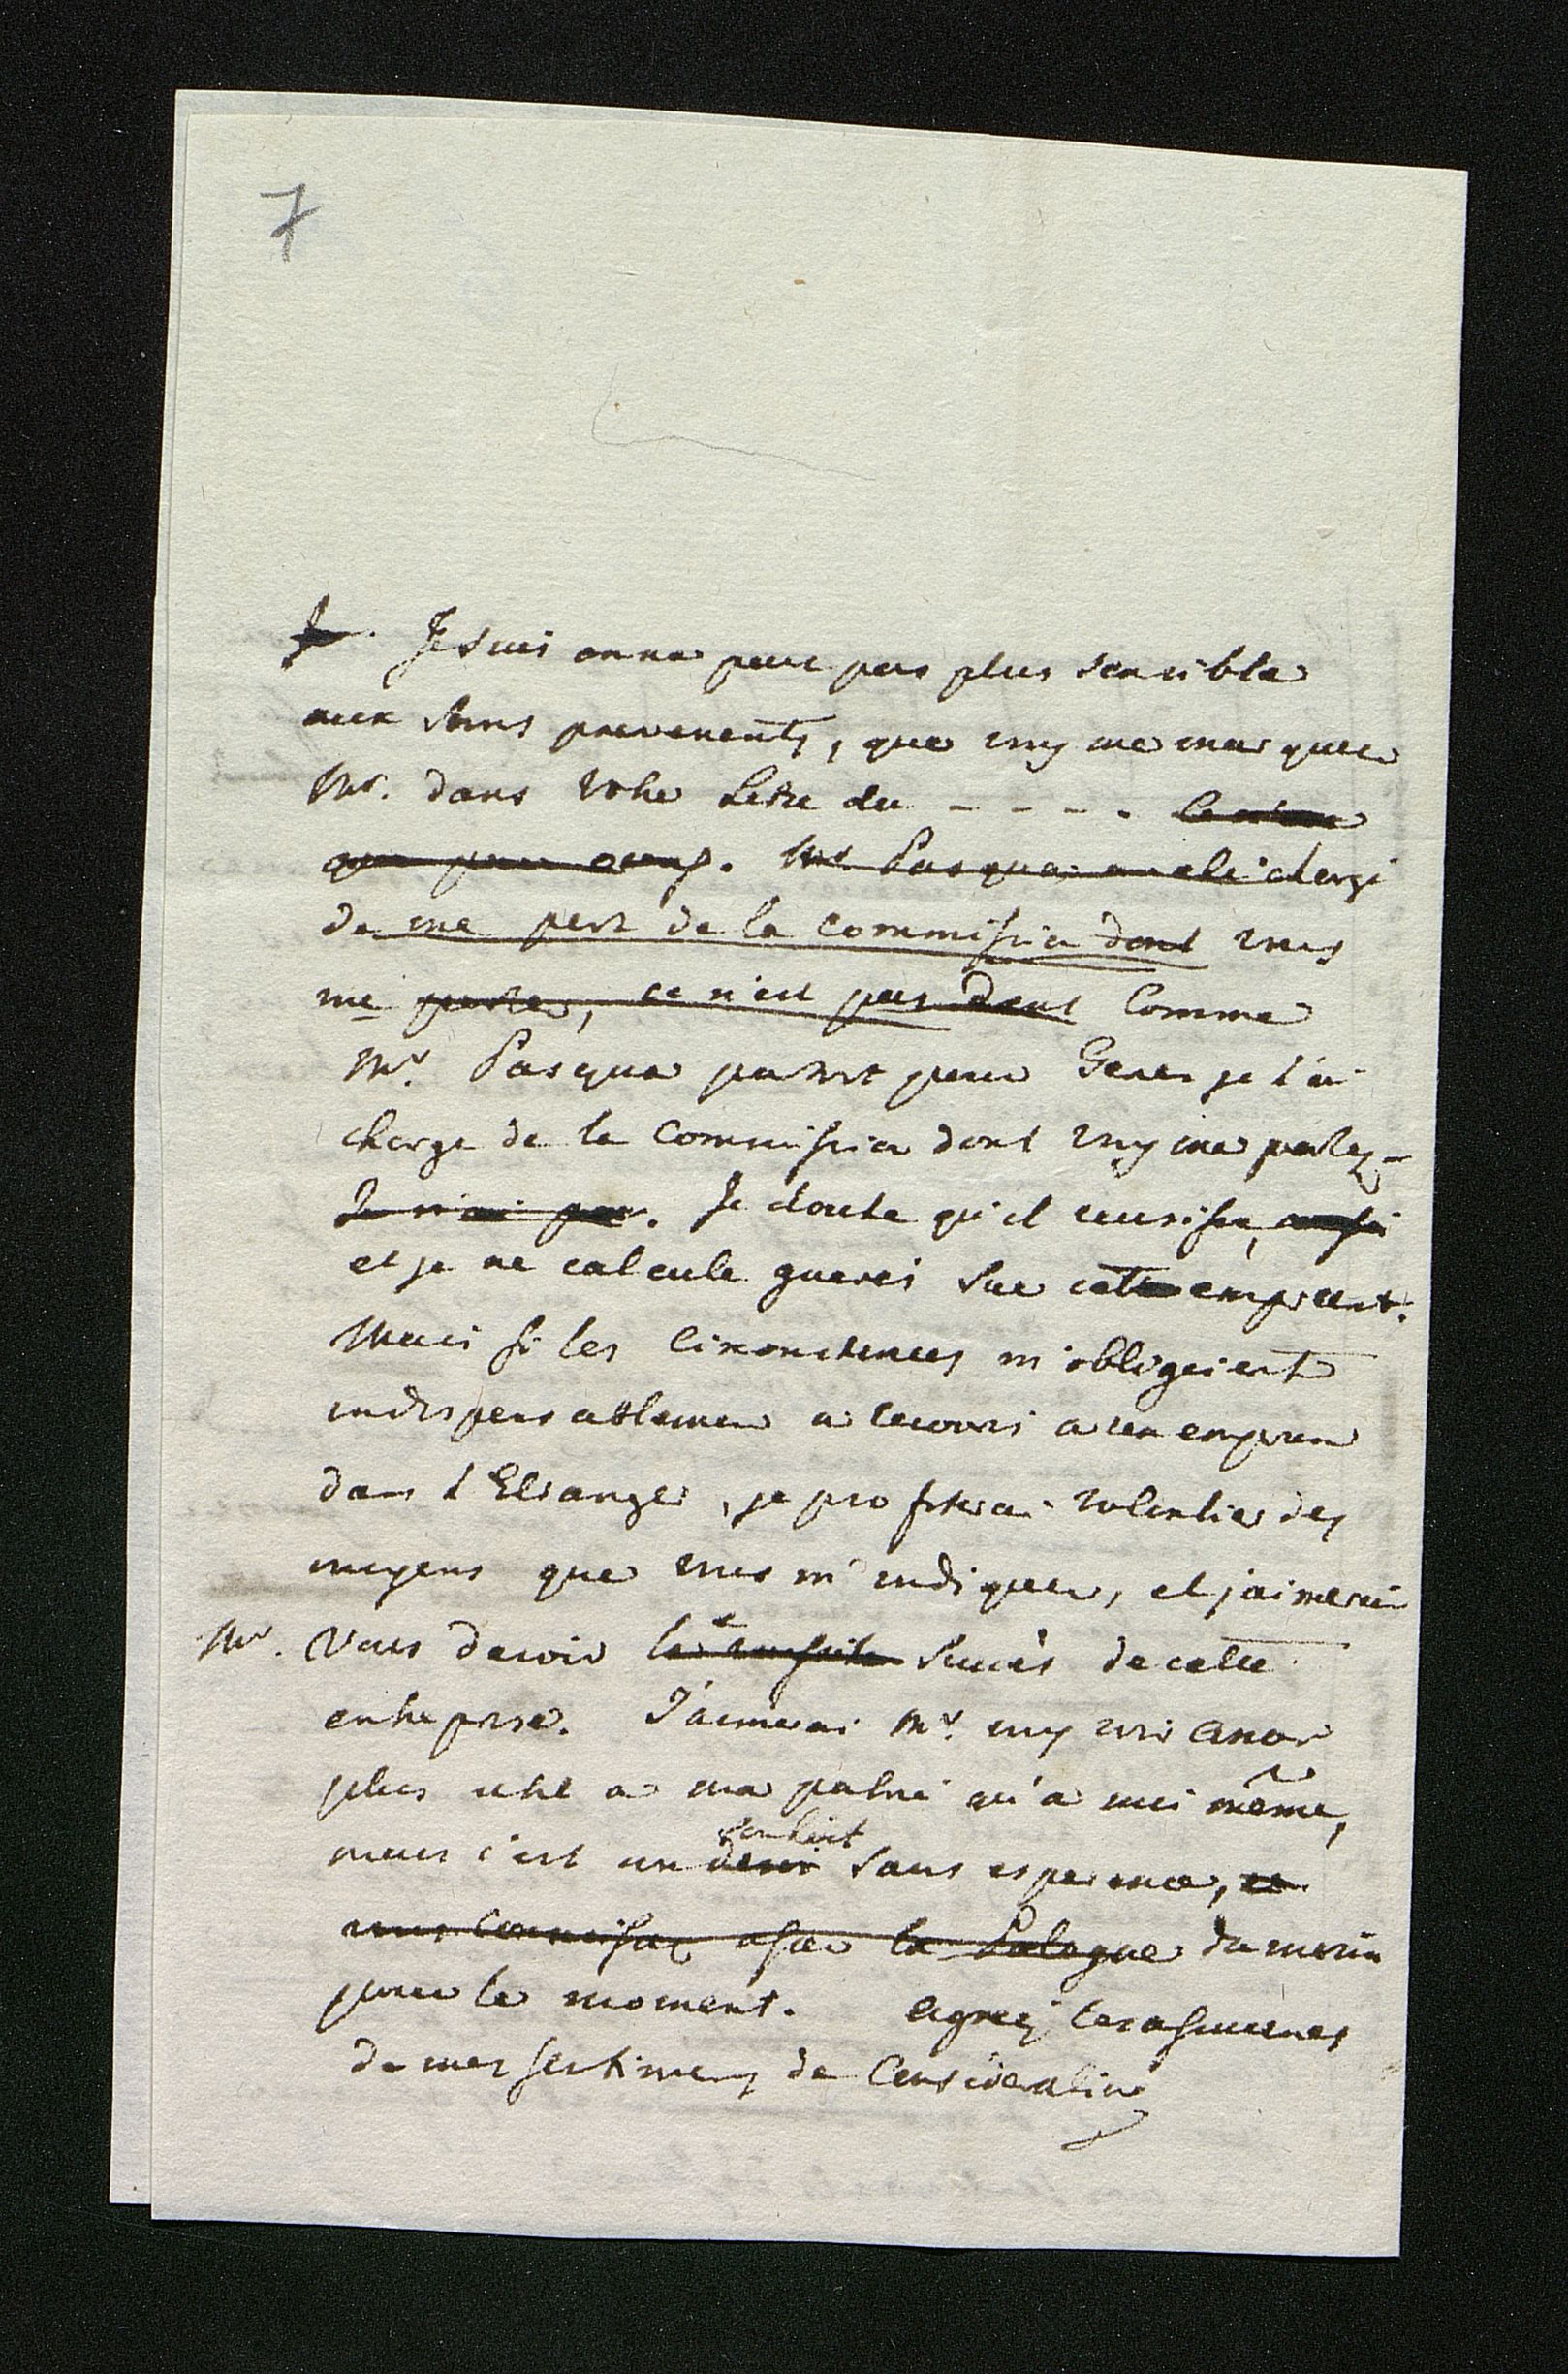 7
Je suis on ne peut pas plus sensible
aux soins prevenents, que vous me marquez
Mr. dans votre Letre du - - - -
Mr. Pasqua chargé
de me part de la commission dont vous
me parlez, ce n'est pas dont Comme
Mr. Pasqua partoit pour Genes je l'ai
chargé de la Commission dont vous me parlez -
Je n'ai pas. Je doute qu'il reusisse,
et je ne calcule gueres sur cette emprunt.
Mais si les Circonstences m'obligeient
indispensablement a recourir a un emprun
dans l'Etranger, je profiterai volontier des
moyens que vous m'indiquez, et j'aimerai
Mr. Vous devoir le succès de cette
entreprise. J'aimerai Mr. vous voir encor
plus utile a ma patrie qu'a moi même,
mais c'est un desir souhait sans esperance, et
vous connoissez assez la Pologne du moin
pour le moment. Agreez les assurences
de mes sentimens de Consideration